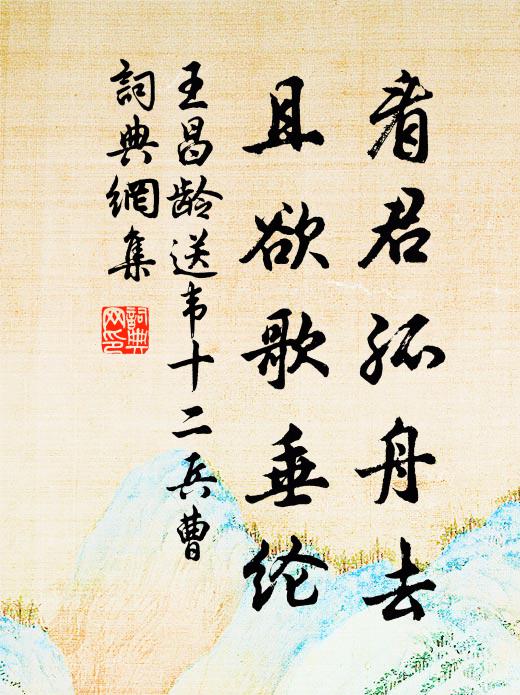 看君孤舟去
且欲歌垂纶
王昌龄送韦十二兵曹
詞典網集
詞典网印